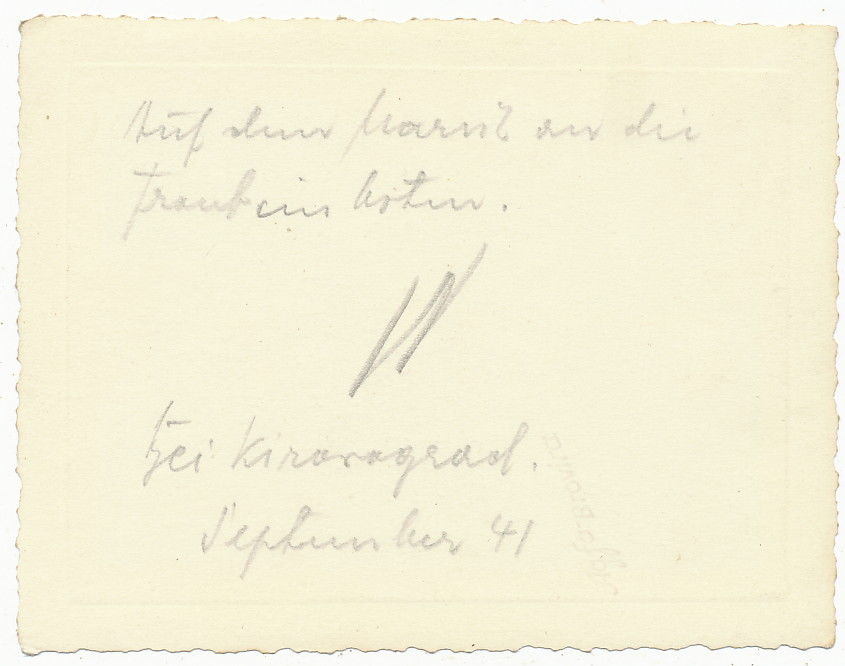 Auf dem Marsch an die
Front im Osten.
Bei Kirowograd.
September 41